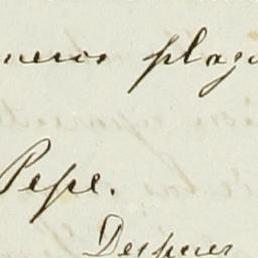 neros plaz
Pepe.
Despues